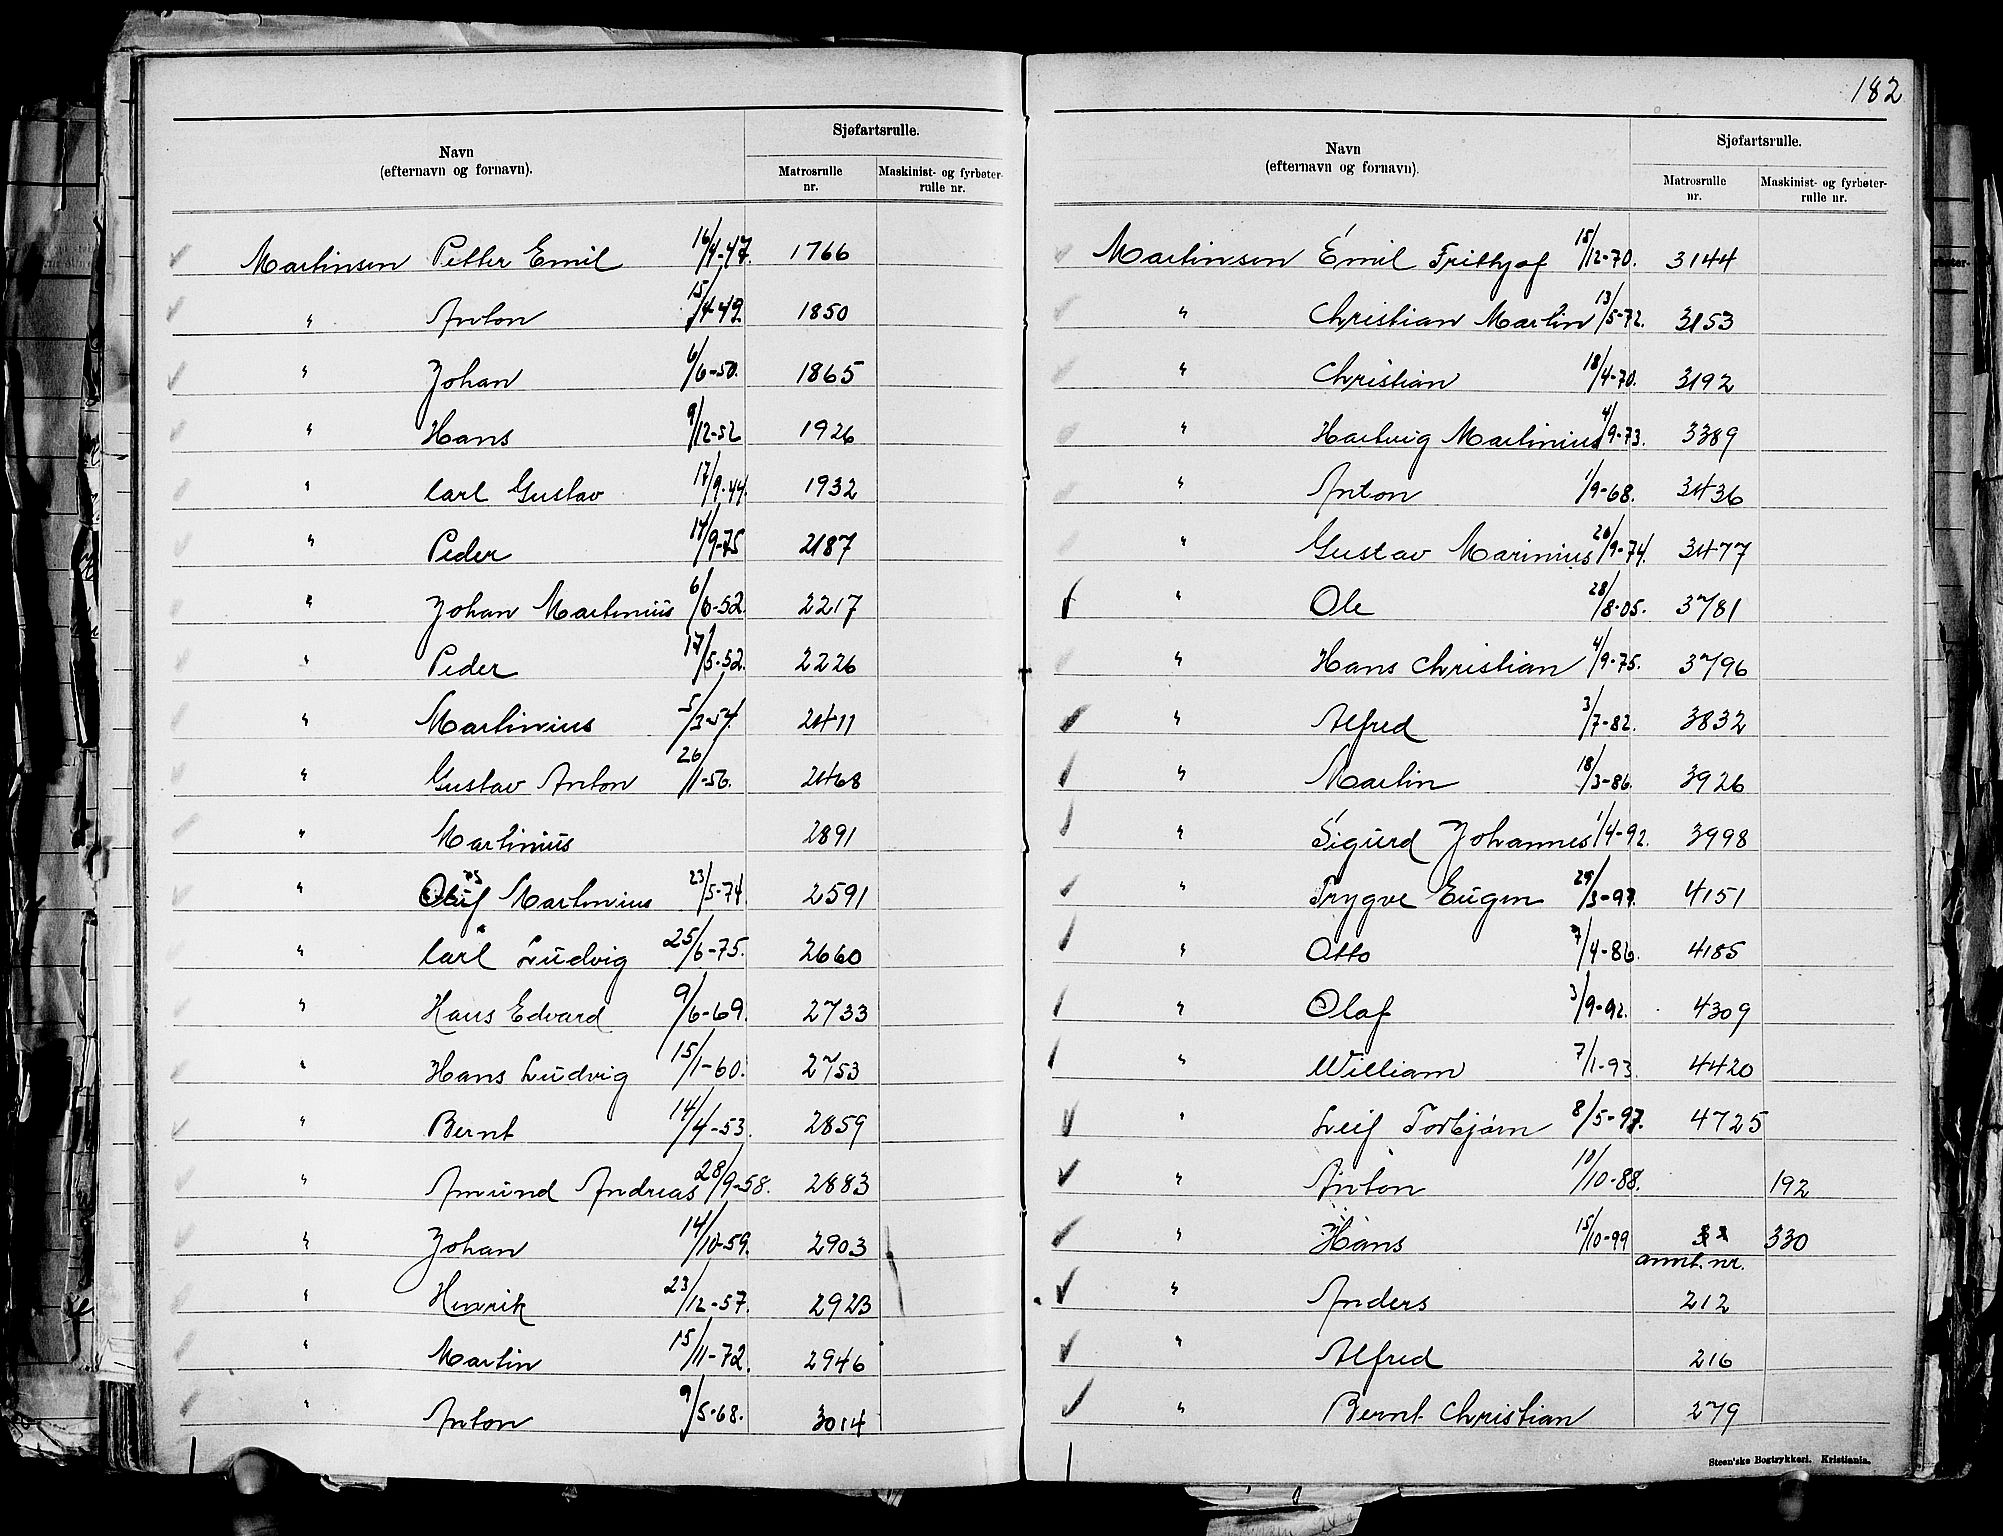 Navn
(efternavn og fornavn).
Sjøfartsrulle.
Matrosrulle nr.
Maskinist- og fyrbøter-rulle nr.
Martinsen Petter Emil 16/4-47. 1766
" Anton 15/4-49. 1850
" Johan 6/6-50. 1865
" Hans 9/12-52 1926
" Carl Gustav 17/9-44. 1932
" Peder 14/9-75 2187
" Johan Martinius 6/6-52. 2217
" Peder 17/5-52. 2226
" Martinius 5/3-54. 2411
" Gustav Anton 26/1-56. 2468
" Martinius 2891
" Martinius 23/5-74. 2591
" Carl Ludvig 25/6-75. 2660
" Hans Edvard 9/6-69. 2733
" Hans Ludvig 15/1-60. 2753
" Bernt 14/4-53. 2859
" Amund Andreas 28/9-58. 2883
" Johan 14/10-59. 2903
" Henrik 23/12-57. 2923
" Martin 15/11-72. 2946
" Anton 9/5-68. 3014
182
Navn
(efternavn og fornavn).
Sjøfartsrulle.
Matrosrulle nr.
Maskinist- og fyrbøter-rulle nr.
Martinsen Emil Frithjof 15/12-70. 3144
" Christian Martin 13/5-72. 3153
" Christian 18/4-70. 3192
" Hartvig Martinius 4/9-73. 3389
" Anton 1/9-68. 3436
" Gustav Marinius 20/9-74. 3477
" Ole 28/8-05. 3781
" Hans Christian 4/9-75. 3796
" Alfred 3/7-82. 3832
" Martin 18/3-86. 3926
" Sigurd Johannes 1/4-92. 3998
" Trygve Eugen 29/3-97. 4151
" Otto 7/4-86. 4185
" Olaf 3/9-92. 4309
" William 7/1-93. 4420
" Leif Torbjørn 8/5-97. 4725
" Anton 10/10-88. 192
" Hans 15/10-99 330
annt. nr.
" Anders 212
" Alfred 216
" Bernt Christian 279
Steen'ske Bogtrykkeri. Kristiania.